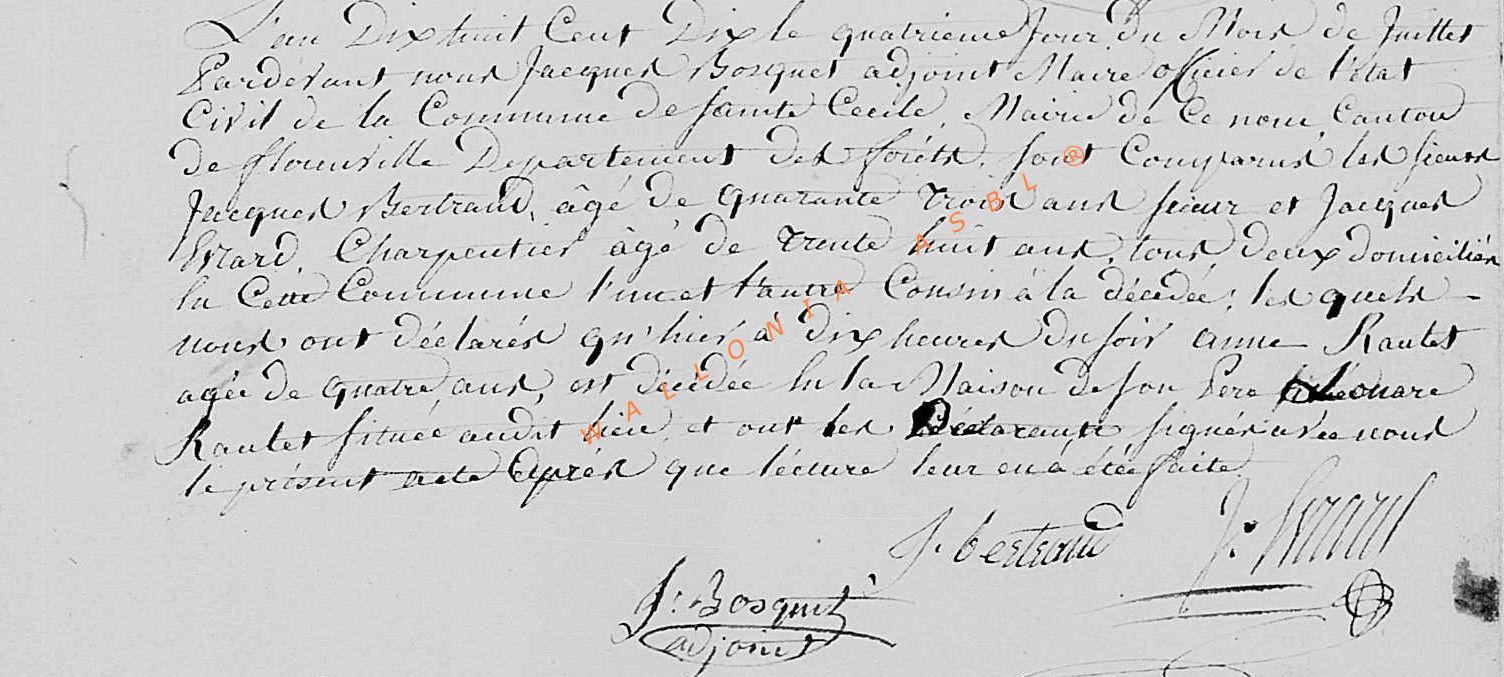 L'an Dix huit Cent Dix le quatrieme Jour du Mois de Juillet
Pardevant nous Jacques Bosquet adjoint Maire officier de l'état
Civil de la Commune de Sainte Cecile, Mairie de Ce nom, Canton
de florenville Departement des forêts, sont Comparus les sieurs
Jacques Bertrand, âgé de quarante trois ans scieur et Jacques
Evrard, Charpentier âgé de trente huit ans, tous deux domiciliés
En Cette Commune l'un et l'autre Cousin à la décédée; les quels
nous ont déclarés qu'hier à dix heures du soir anne Raulet
agée de quatre ans, est décédée En la Maison de son Pere
Raulet située audit lieu, et ont les Déclarants signés avec nous
le présent acte Après que lécture leur en à étée faite
J. bertrand J. Evrard
J. Bosquet
adjoint
WALLONIA ASBL ®